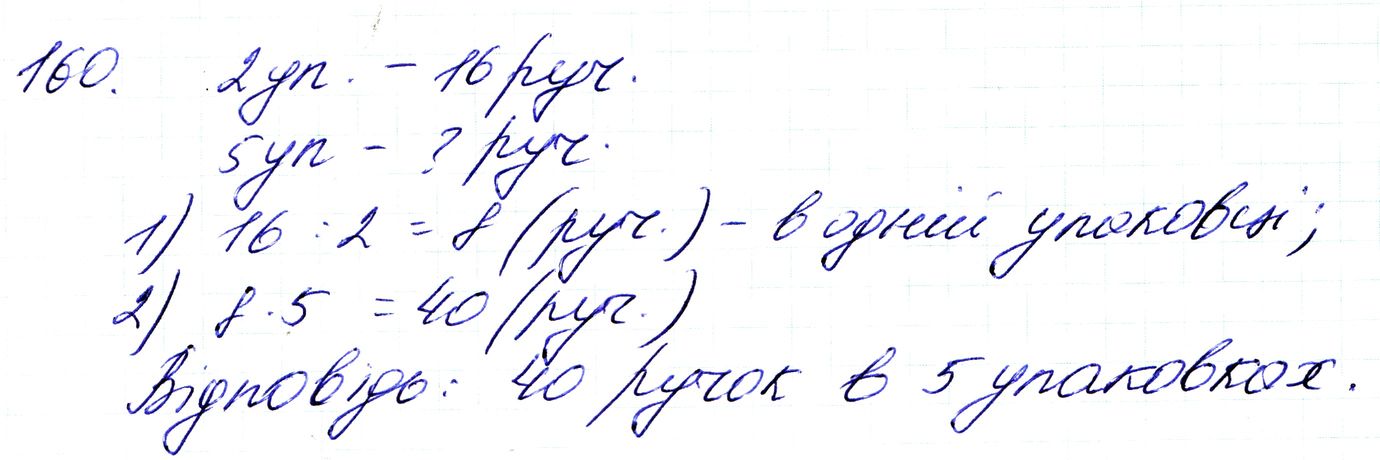 160. 2 уп. - 16 руч.
5 уп - ? руч.
1) 16 : 2 = 8 (руч.) - в одній упаковці;
2) 8 · 5 = 40 (руч.)
Відповідь: 40 ручок в 5 упаковках.